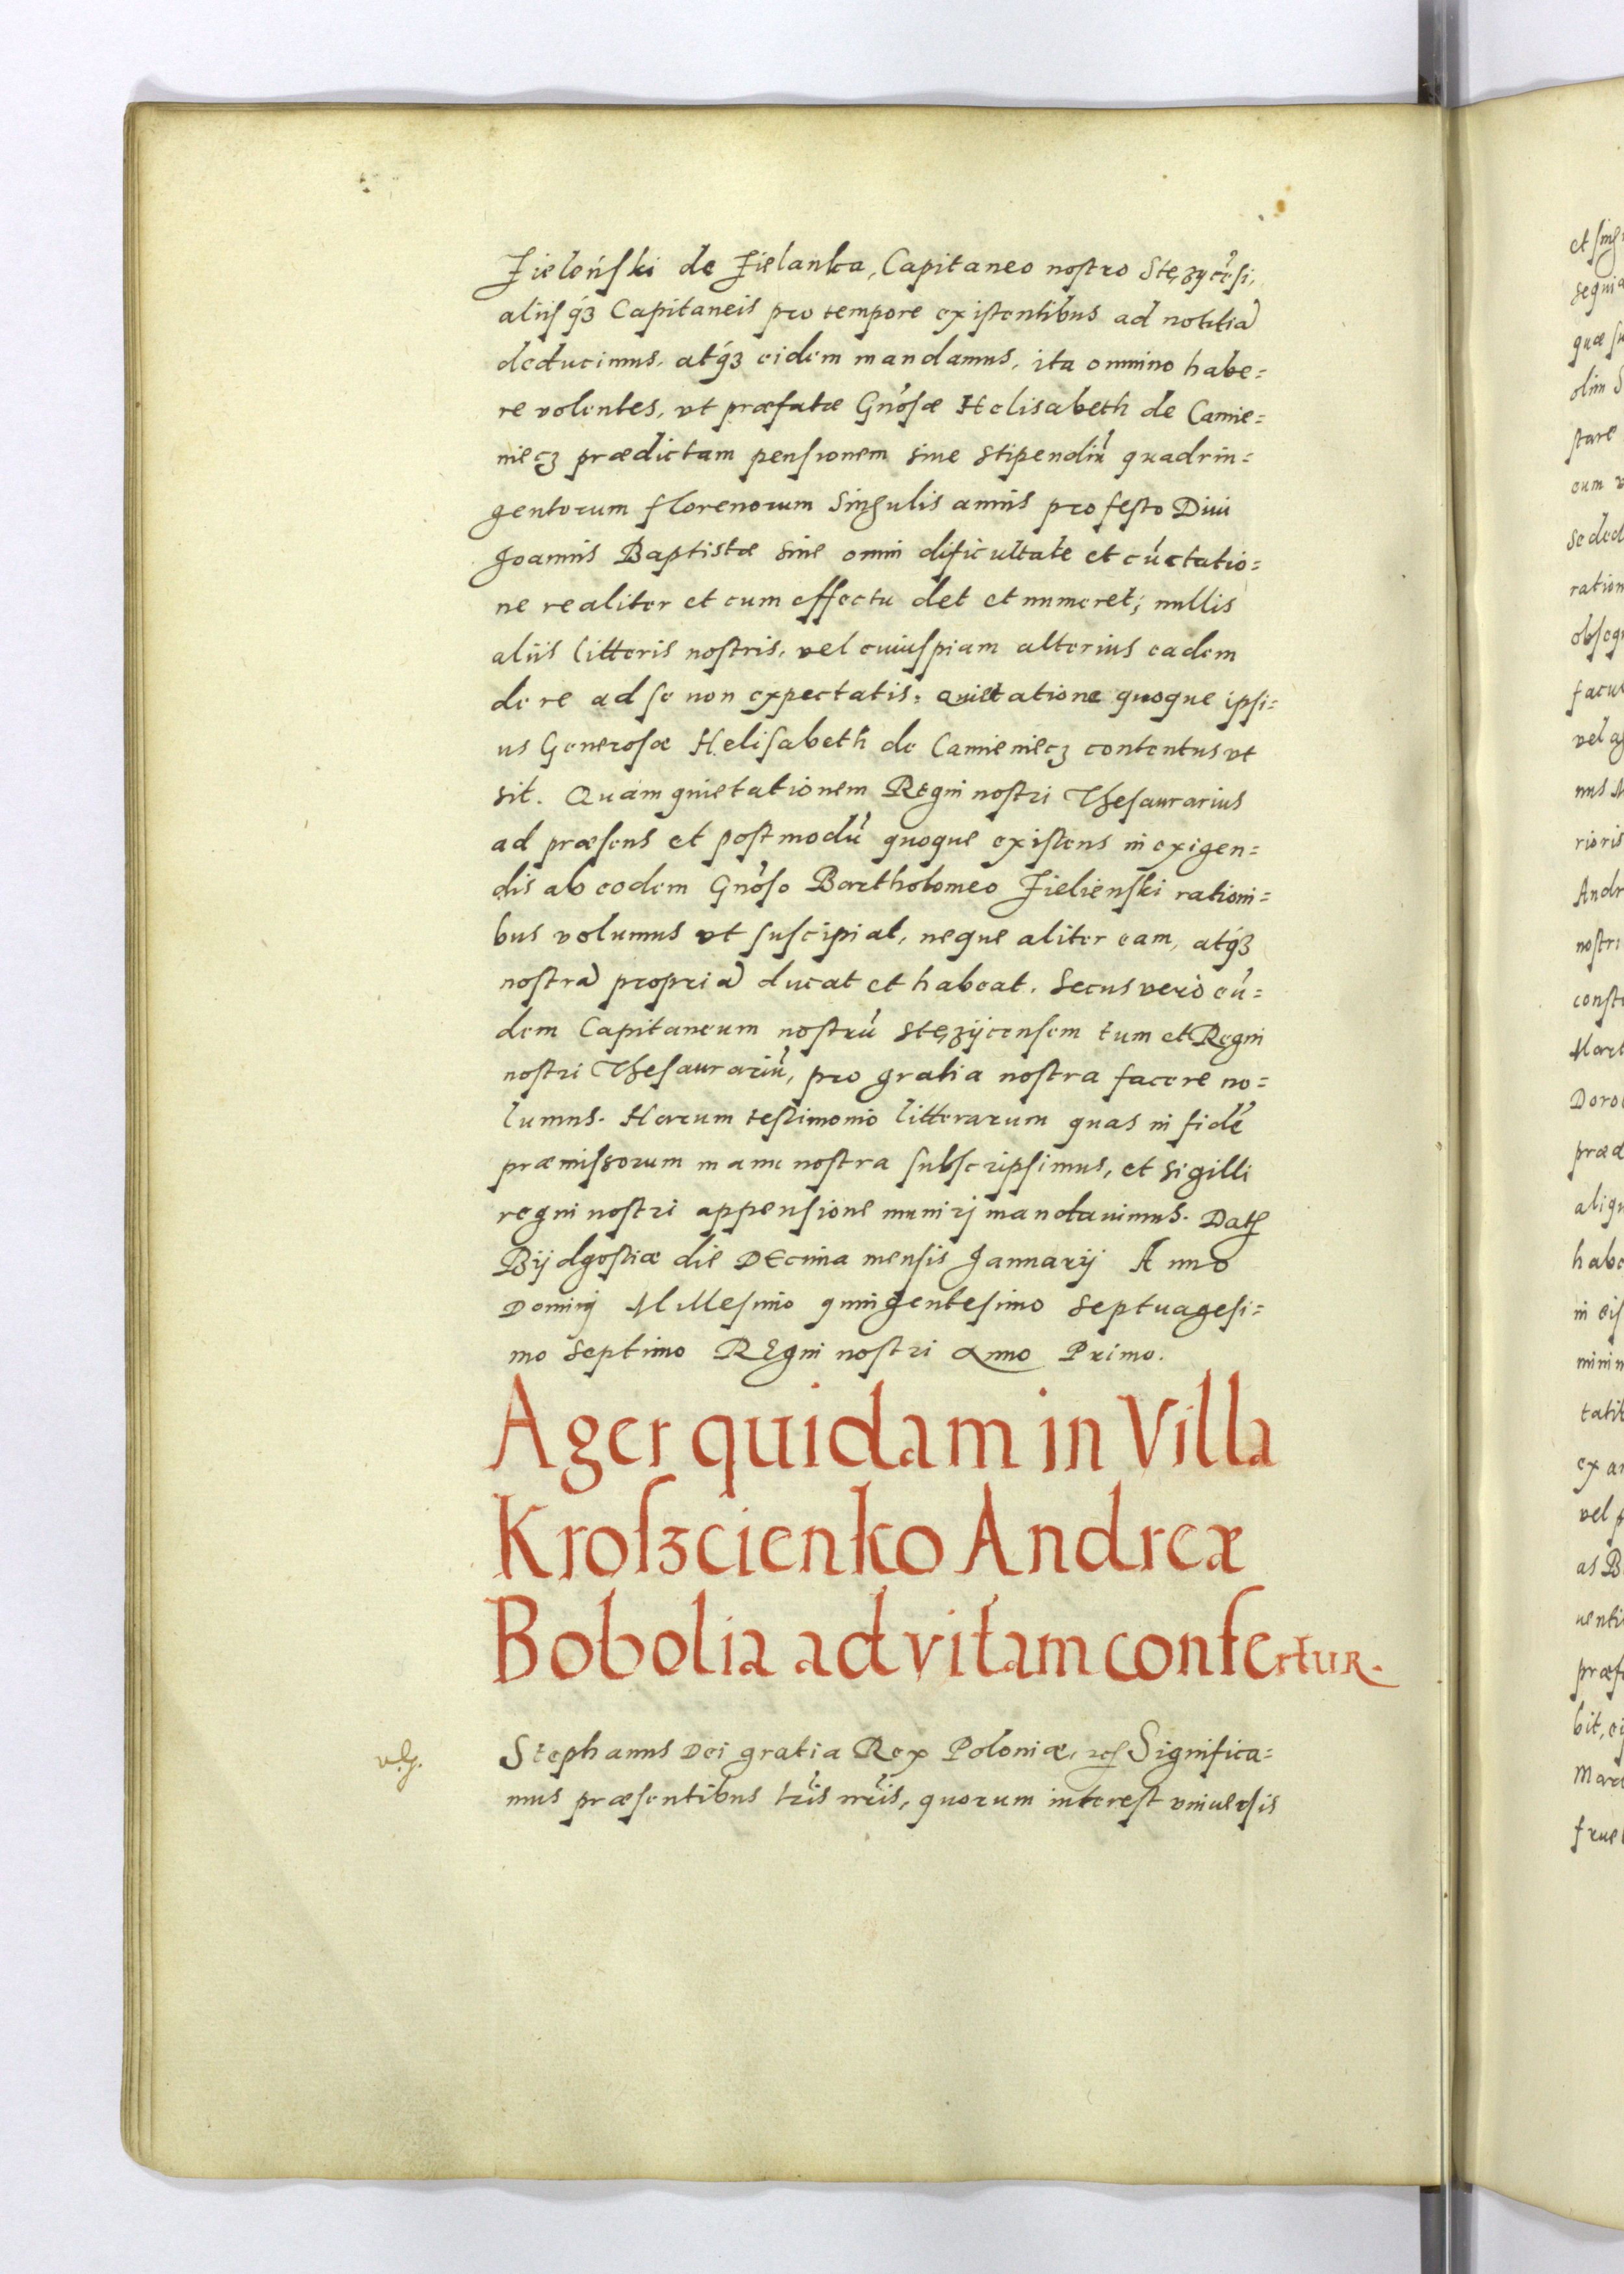 Zieleńſki de Zielanka, Capitaneo nostro Stęzycẽsi,
aliisq́ꝫ Capitaneis pro tempore existentibus ad notitiã
deducimus, atq́ꝫ eidem mandamus, ita omnino habe=
re volentes, vt præfatæ Gnõsæ Helisabeth de Camie=
niecz prædictam pensionem siue stipendiũ quadrin=
gentorum florenorum singulis annis pro festo Diui
Joannis Baptistæ sine omni dificultate et cũctatio=
ne realiter et cum effectu det et numeret; nullis
aliis litteris nostris, vel cuiuspiam alterius eadem
de re ad se non expectatis, quietatione quoque ipsi=
us Generosæ Helisabeth de Camieniecz contentus vt
sit. Quam quietationem Regni nostri Thesaurarius
ad præsens et postmodũ quoque existens in exigen=
dis ab eodem Gnõso Bartholomeo Zielienſki rationi=
bus volumus vt suscipiat, neque aliter eam, atq́ꝫ
nostrã propriã ducat et habeat. Secus verò eũ=
dem Capitaneum nostrũ Stęzijcensem tum et Regni
nostri Thesaurariũ, pro gratia nostra facere no=
lumus. Harum testimonio litterarum quas in fidẽ
præmissorum manu nostra subscripsimus, et sigilli
regni nostri appensione munirj mandauimus. Datꝭ
Bijdgostiæ die DEcima mensis Januarij Anno
Dominj Millesimo quingentesimo septuagesi=
mo septimo REgni nostri Anno Primo.
Ager quidam in Villa
Kroſzcienko Andreæ
Bobolia ad vitam confertur.
vlg.
Stephanus Dei gratia Rex Poloniæ, etcꝭ Significa=
mus præsentibus lr̃is nr̃is, quorum interest vniuersis